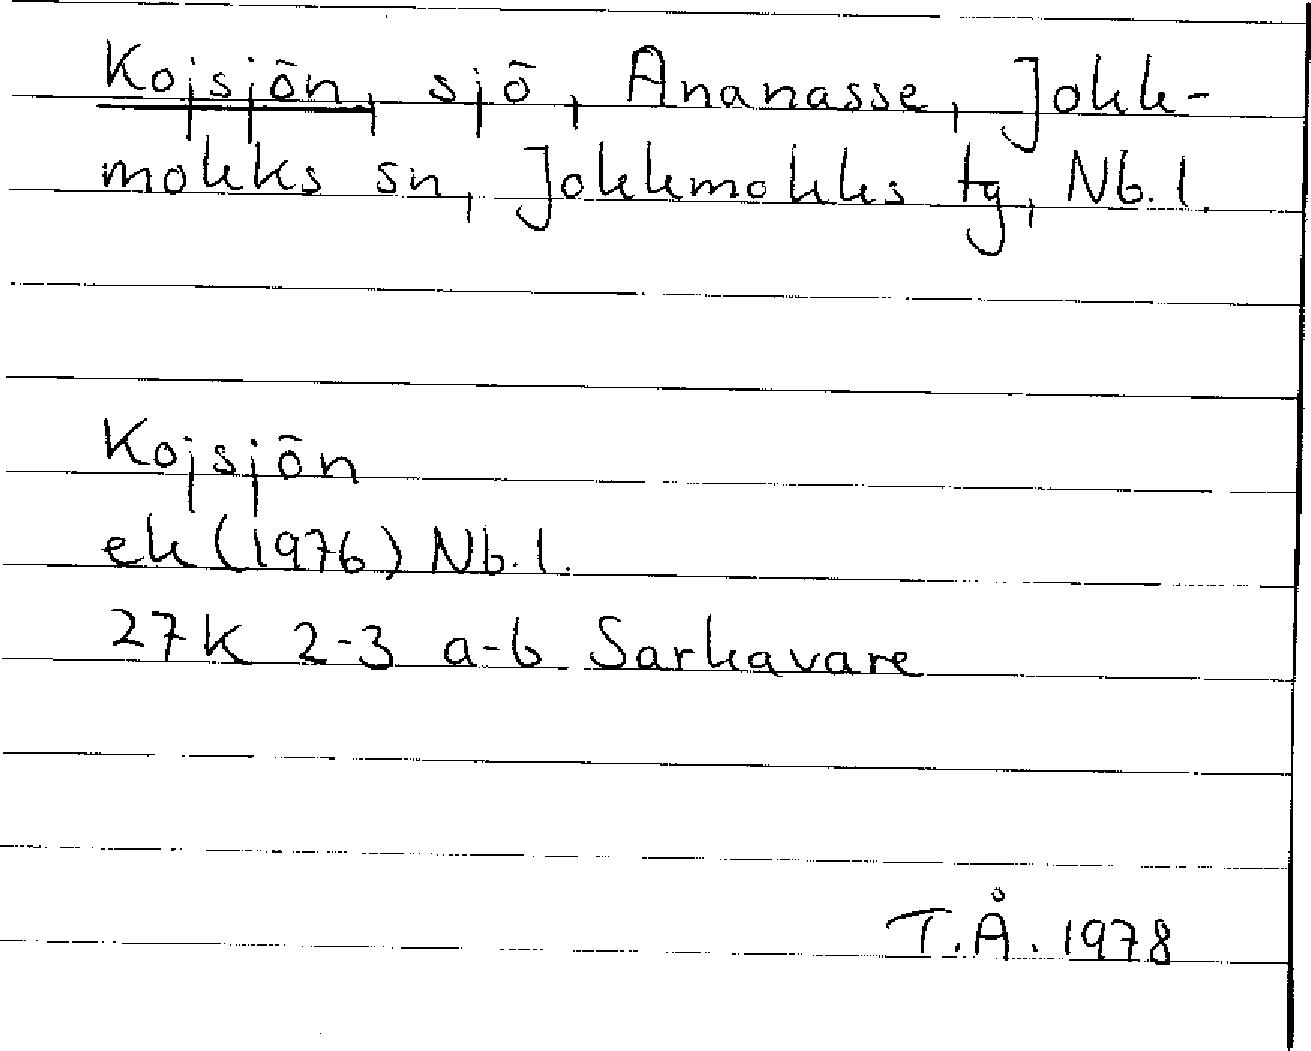 Kojsjön, sjö, Ananasse, Jokk-
mokks sn, Jokkmokks tg, Nb. l.
Kojsjön
ek (1976) Nb. l.
27K 2-3 a-b Sarkavare
T.Å. 1978